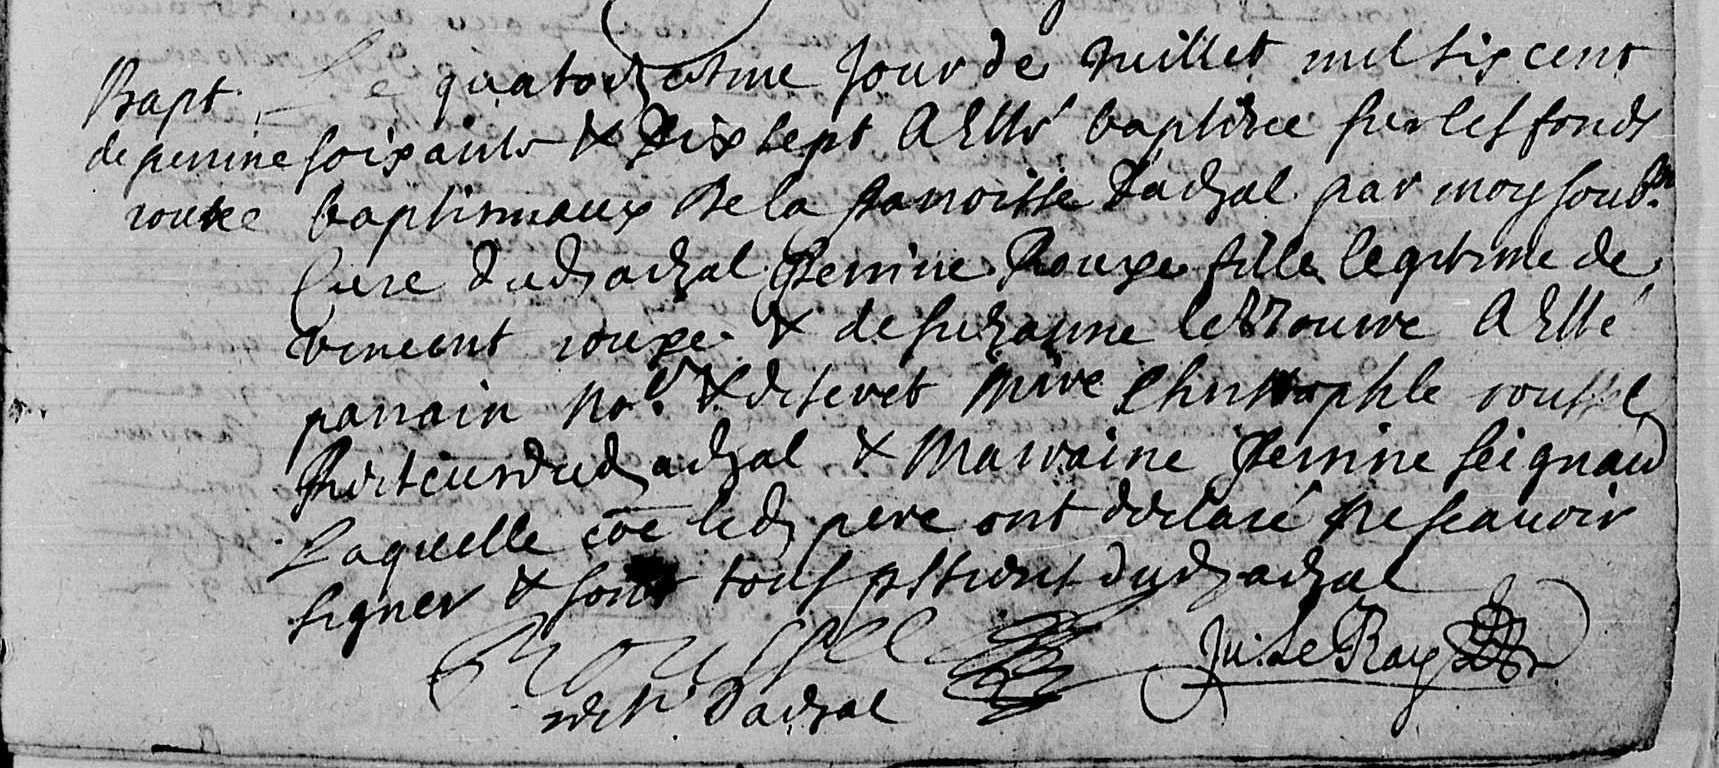 Bapt
de perrine
rouxe
Le quatorziesme jour de Juillet mil six cent
soixante & dix sept a esté baptizee sur les fonds
baptismaux de la paroisse d'adzal par moy soubs.
Curé dud. adzal Perrine Rouxe fille legitime de
vincent rouxe & de suzanne le douve a esté
parrain no. & discret mire Christophle roussel
Recteur dud. adzal & Marraine perrine seignard
Laquelle coe led. pere ont déclaré ne scavoir
signer & sont tous pstient dud. adzal
Roussel
rect. d'adzal
Ju. Le Ray